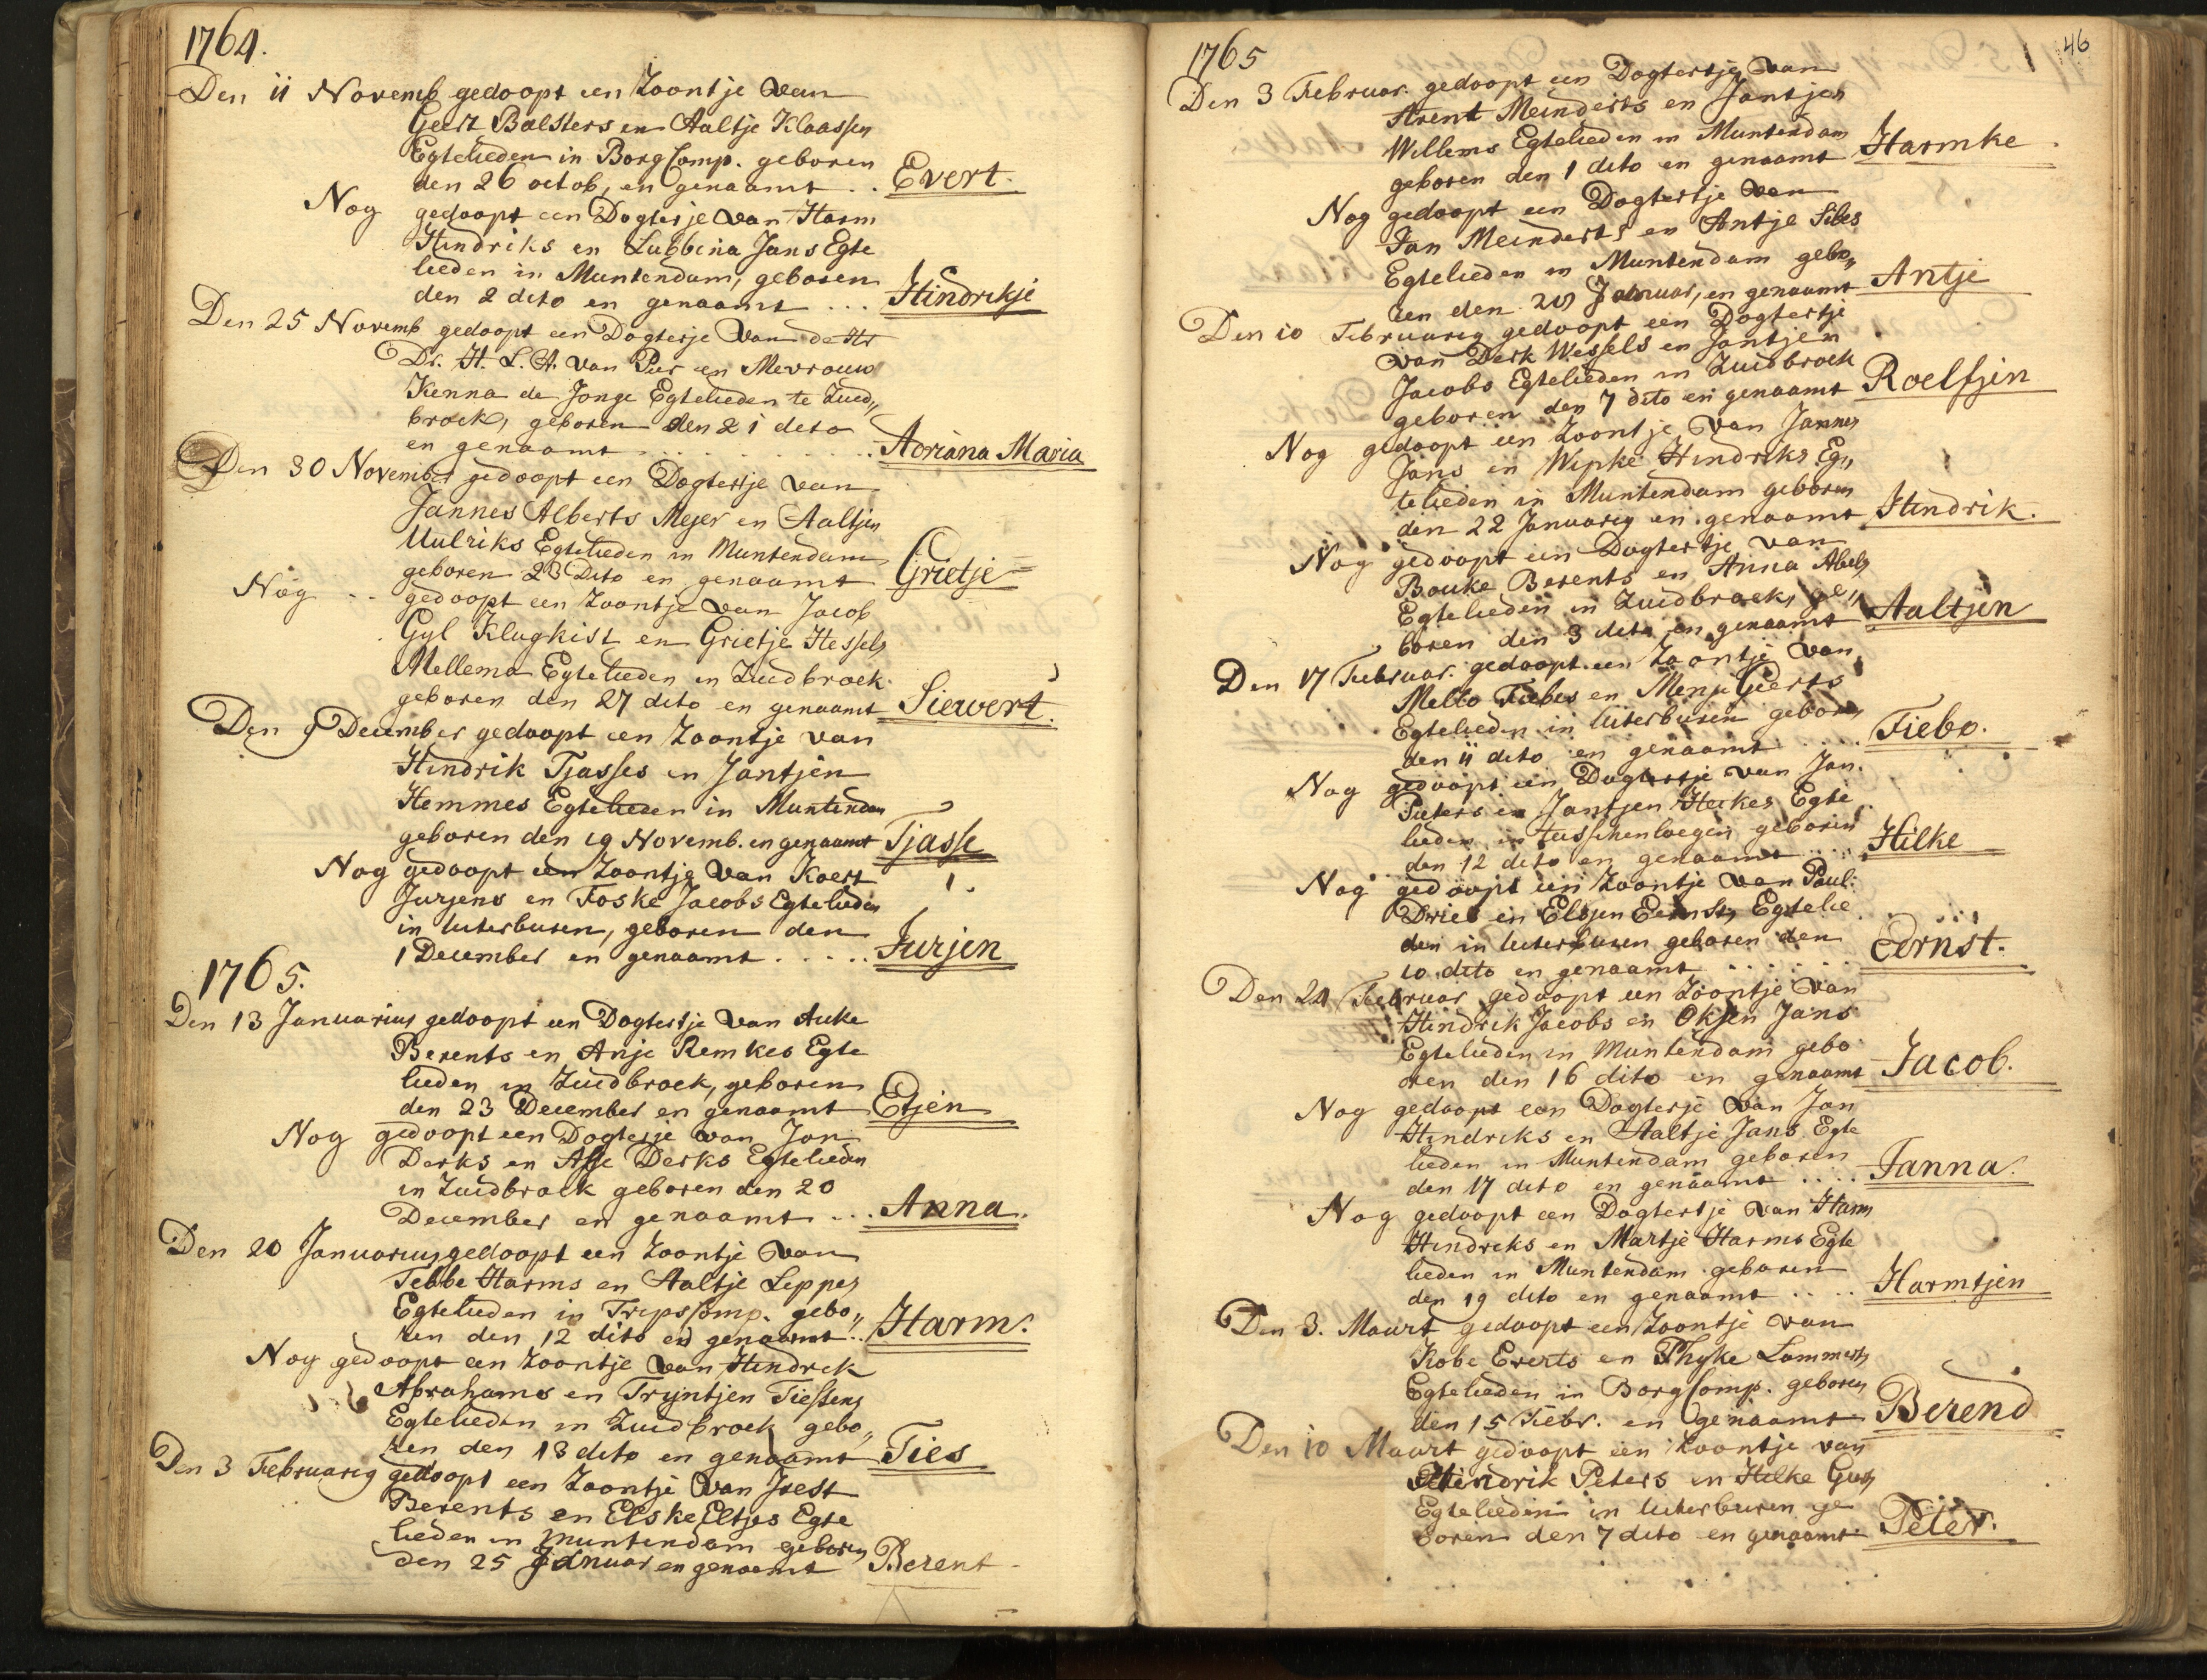 1764.
Den 11 Novemb gedoopt een Zoontje van
Geert Balsters en Aaltje Klaassen
Egtelieden in BorgComp. geboren
den 26 octob, en genaamt .. Evert.
Nog gedoopt een Dogterje van Harm
Hindriks en Lubbina Jans Egte
lieden in Muntendam, geboren
den 2 dito en genaamt ... Hindrikje
Den 25 Novemb gedoopt een Dogterje van de Hr
Dr. H. L. A. van Pur en Mevrouw
Kenna de Jonge Egtelieden te Zuid„
broek, geboren den 21 dito
en genaamt .......... Adriana Maria
Den 30 November gedoopt een Dogtertje van
Jannes Alberts Mejer en Aaltjen
Uulriks Egtelieden in Muntendam
geboren 23 Dito en genaamt Grietje
Nog .. gedoopt een Zoontje van Jacob
Gyl Klugkist en Grietje Hessels
Mellema Egtelieden in Zuidbroek
geboren den 27 dito en genaamt Siewert.
Den 9 December gedoopt een Zoontje van
Hindrik Tjasses en Jantjen
Hemmes Egtelieden in Muntendam
geboren den 19 Novemb. en genaamt Tjasse
Nog gedoopt een Zoontje van Koert
Jurjens en Foske Jacobs Egtelieden
in Uiterburen, geboren den
1 December en genaamt ..... Jurjen
1765.
Den 13 Januarius gedoopt een Dogtertje van Auke
Berents en Anje Remkes Egte
lieden in Zuidbroek, geboren
den 23 December en genaamt Etjen
Nog gedoopt een Dogterje van Jan
Derks en Afje Derks Egtelieden
in Zuidbroek geboren den 20
December en genaamt ... Anna.
Den 20 Januarius gedoopt een Zoontje van
Tebbe Harms en Aaltje Leppes
Egtelieden in TripsComp. gebo„
ren den 12 dito en genaamt .. Harm.
Nog gedoopt een Zoontje van Hindrik
Abrahams en Tryntjen Tiessens
Egtelieden in Zuidbroek gebo„
ren den 13 dito en genaamt Ties
Den 3 Februarig gedoopt een Zoontje van Jeest
Berents en Elske Eltjes Egte
lieden in Muntendam geboren
den 25 Januar en genaamt Berent
46
1765
Den 3 Februar. gedoopt een Dogtertje van
Arent Meinderts en Jantjen
Willems Egtelieden in Muntendam
geboren den 1 dito en genaamt Harmke
Nog gedoopt een Dogtertje van
Jan Meinderts en Antje Sibes
Egtelieden in Muntendam gebo„
ren den Januar, en genaamt Antje
Den 10 Februarig gedoopt een Dogtertje
van Derk Wessels en Jantjen
Jacobs Egtelieden in Zuidbroek
geboren den 7 dito en genaamt Roelfjen
Nog gedoopt een Zoontje van Jannes
Jans en Wipke Hindriks Eg„
telieden in Muntendam geboren
den 22 Januarig en genaamt Hindrik.
Nog gedoopt een Dogtertje van
Bouke Berents en Anna Abels
Egtelieden in Zuidbroek, ge„
boren den 3 dito en genaamt Aaltjen
Den 17 Februar. gedoopt een Zoontje van
Mello Fiebes en Menje Geerts
Egtelieden in Uiterburen geboren
den 11 dito en genaamt .... Fiebo.
Nog gedoopt een Dogtertje van Jan
Pieters en Jantjen Heikes Egte
lieden in Tusschenloegen geboren
den 12 dito en genaamt .... Hilke
Nog gedoopt een Zoontje van Paul:
Dries en Elsjen Eernsts Egtelie
den in Uiterburen geboren den
10 dito en genaamt ...... Eernst.
Den 24 Februar gedoopt een Zoontje van
Hindrik Jacobs en Okjen Jans
Egtelieden in Muntendam gebo
oren den 16 dito en genaamt Jacob.
Nog gedoopt een Dogterje van Jan
Hindriks en Aaltje Jans Egte
lieden in Muntendam geboren
den 17 dito en genaamt .... Janna.
Nog gedoopt een Dogtertje van Harm
Hindriks en Martje Harms Egte
lieden in Muntendam geboren
den 19 dito en genaamt .... Harmtjen
Den 3. Maart gedoopt een Zoontje van
Kobe Everts en Thyke Lammerts
Egtelieden in BorgComp. geboren
den 15 Febr. en genaamt Berend
Den 10 Maart gedoopt een Zoontje van
Hindrik Peters en Hilke
Egtelieden in Uiterburen ge
boren den 7 dito en genaamt Peter.